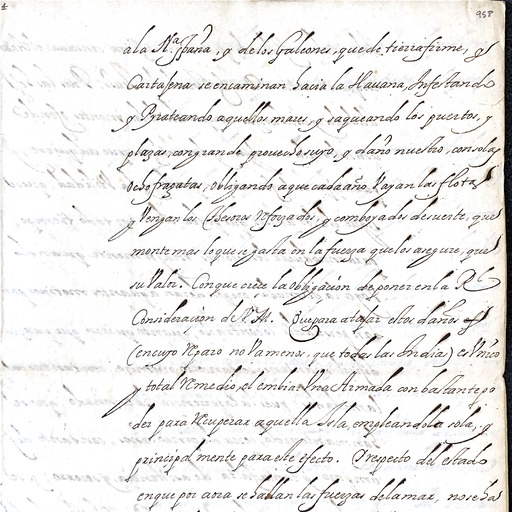 958
a la Na. España, y de los Galeones, que de tierra firme, y
Cartajena se encaminan hacia la Hauana, Infestando
y Pirateando aquellos mares, y saqueando los puertos, y
plazas, con grande prouecho suyo, y daño nuestro, con solas
ocho fragatas, obligando a que cada año Vayan las flotas
y Vengan los Thesoros reforzados, y comboyados de suerte, que
monte mas lo que se gasta en la fuerza que los asegure, que
su Valor. Con que crece la obligación de poner en la Rl.
Consideración de V.M. Que para atajar estos daños
(en cuyo reparo no Va menos, que todas las Indias) es Vnico
y total remedio, el embiar Vna Armada con bastante po
der para recuperar aquella Isla, empleandola sola, y
principalmente para este efecto. Y respecto del estado
en que por aora se hallan las fuerzas del a mar, no se ha